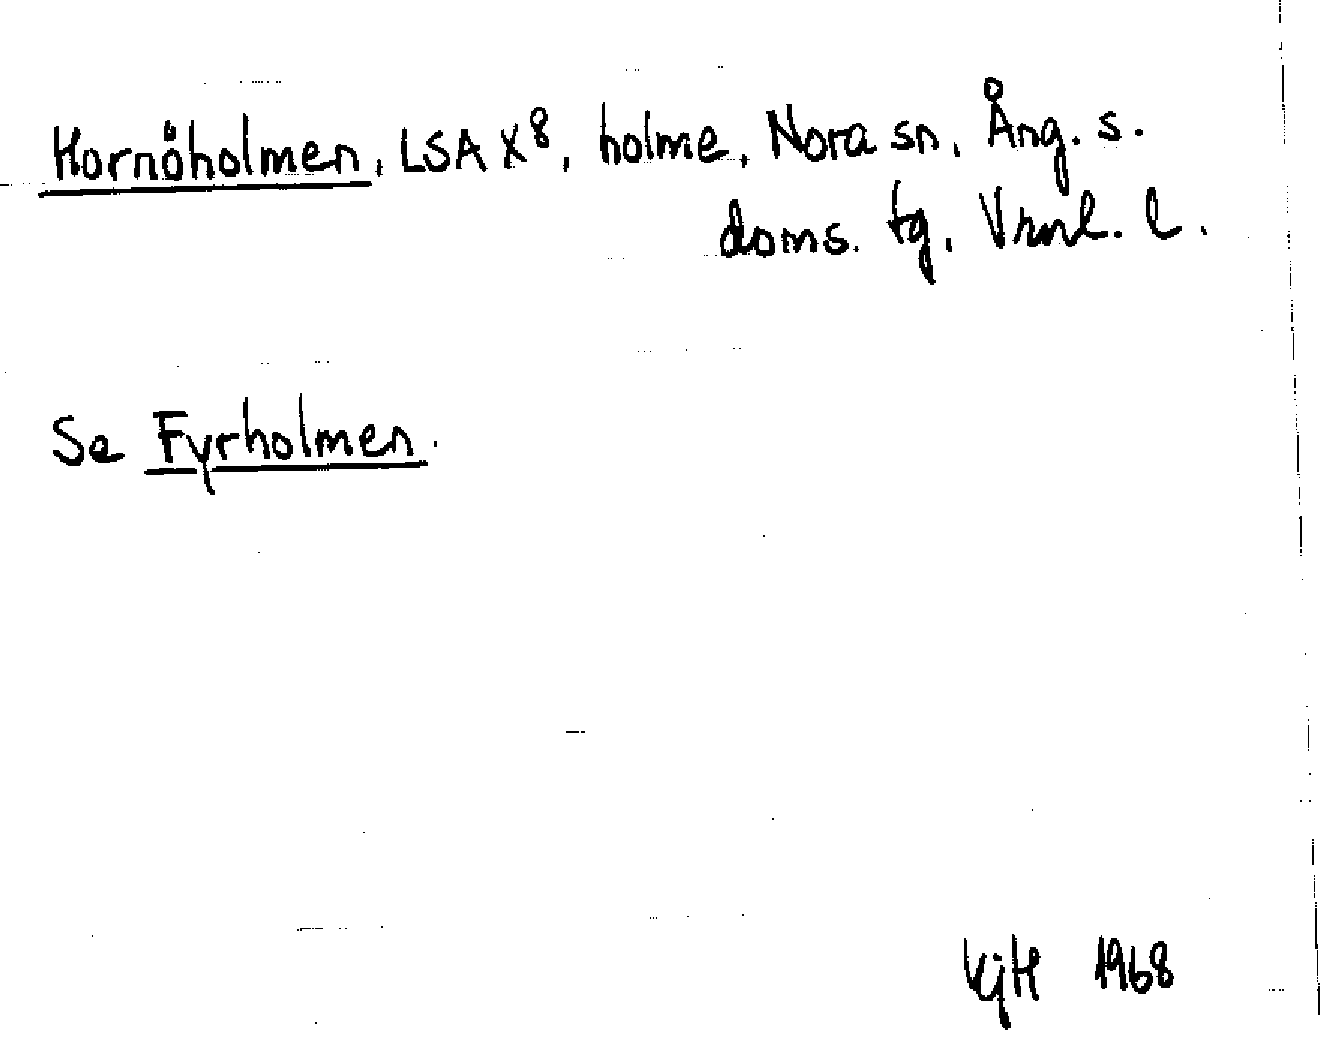 Hornöholmen, LSA X⁸, holme, Nora sn, Ång. s.
doms. tg, Vrnl. l.
Se Fyrholmen.
1968